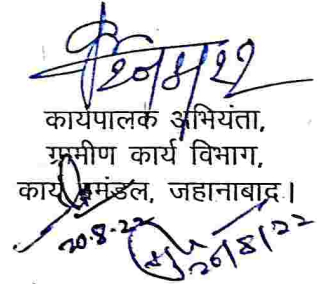 कार्यपालक अभियंता,
ग्रामीण कार्य विभाग,
कार्य प्रमंडल, जहानाबाद।
20.8.22
20/8/22